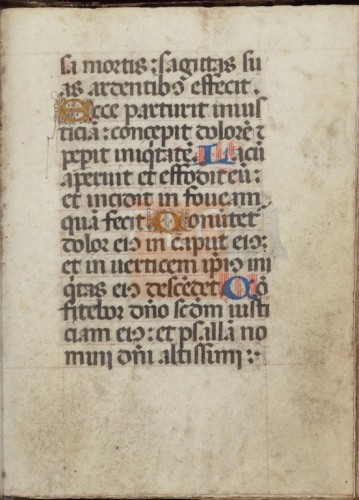 sa mortis : sagittas su
as ardentibꝰ effecit.
Ecce parturit inius
ticia : concepit dolorē ⁊
peperit iniq̇tatē. Lacū
aperuit et effodit eū :
et incidit in foueam
quā fecit. Conūtet̉
dolor eiꝰ in caput eiꝰ :
et in uerticem ip̄iꝰ ini
q̇tas eiꝰ descēdet. Cō
fitebor dn̄o scdm̄ iusti
ciam eiꝰ : et psallā no
mini dn̄i altissimi :